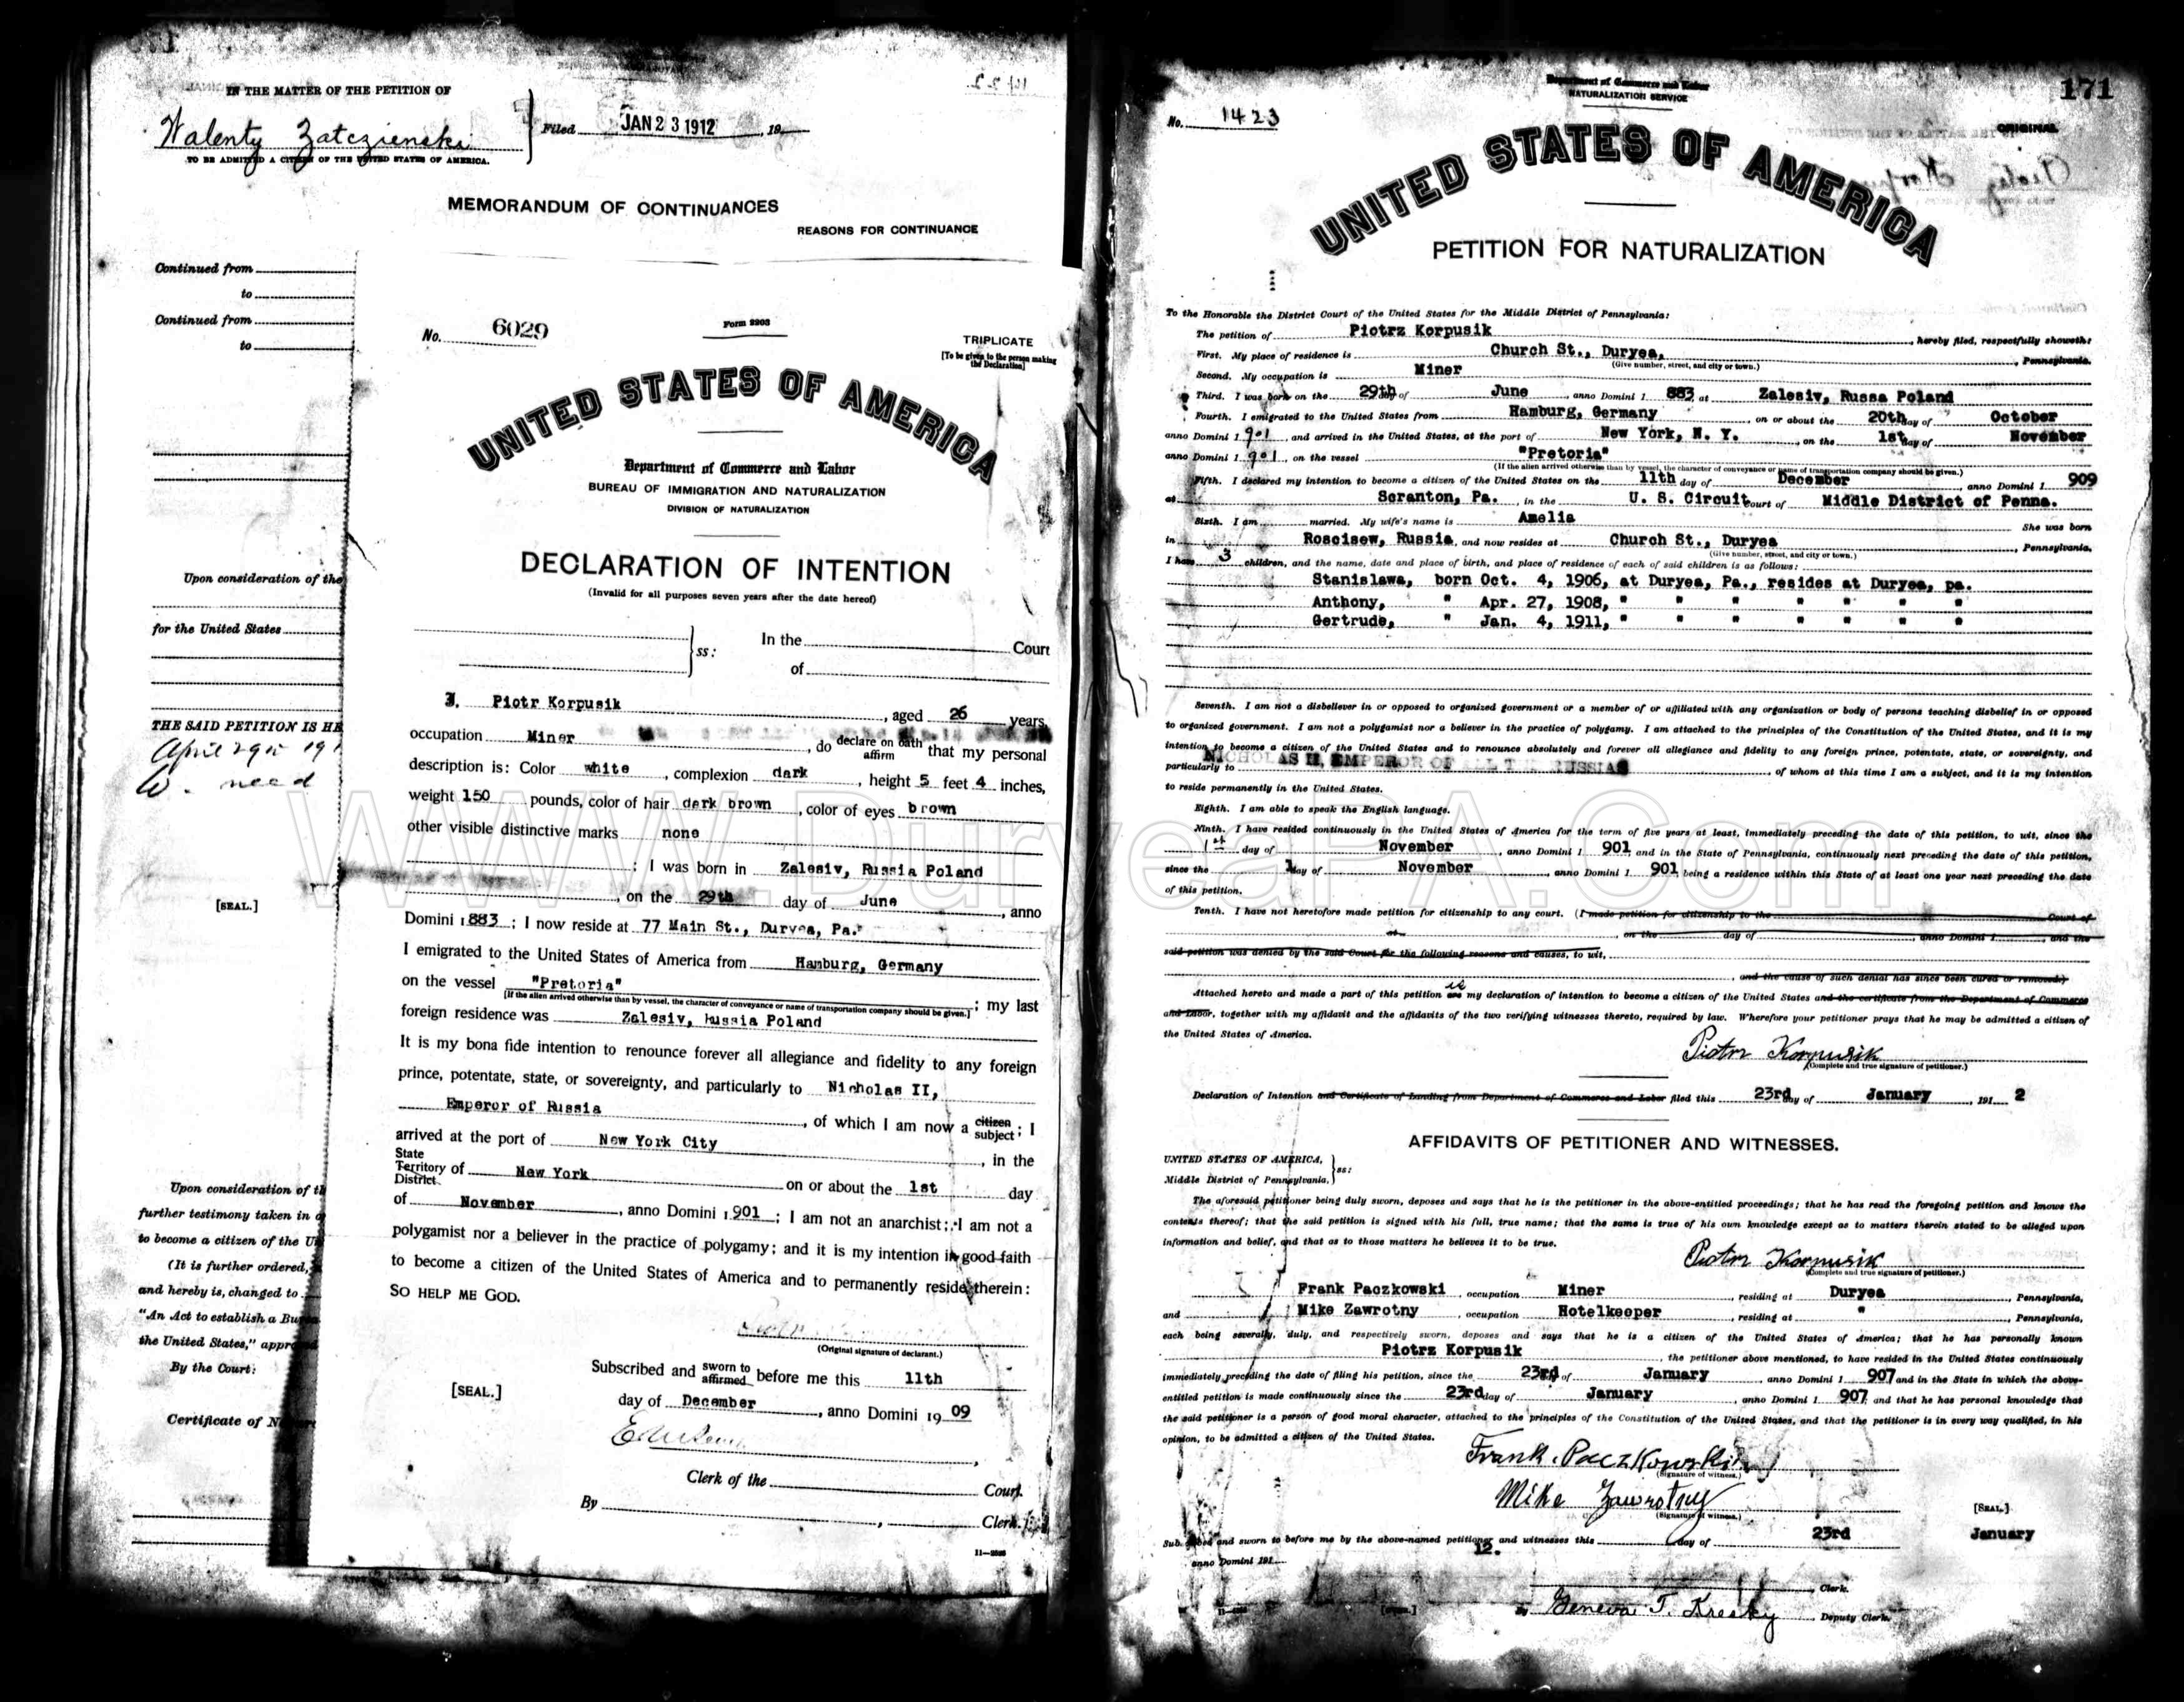 IN THE MATTER OF THE PETITION OF
Walenty Zatczienski
TO BE ADMITTED A CITIZEN OF THE UNITED STATES OF AMERICA.
Filed JAN 23 1912, 19
MEMORANDUM OF CONTINUANCES
REASONS FOR CONTINUANCE
Continued from
to
Continued from
to
Upon consideration of the
for the United States
THE SAID PETITION IS HE
April 29th 191
W. need
[SEAL.]
Upon consideration of th
further testimony taken in
to become a citizen of the U
(It is further ordered,
and hereby is, changed to
"An Act to establish a Bu
the United States," appro
By the Court:
Certificate of N
No. 6029
Form 2203
TRIPLICATE
[To be given to the person making
the Declaration]
UNITED STATES OF AMERICA
Department of Commerce and Labor
BUREAU OF IMMIGRATION AND NATURALIZATION
DIVISION OF NATURALIZATION
DECLARATION OF INTENTION
(Invalid for all purposes seven years after the date hereof)
ss: In the Court
of
I, Piotr Korpusik, aged 26 years,
occupation Miner, do declare on oath affirm that my personal
description is: Color white, complexion dark, height 5 feet 4 inches,
weight 150 pounds, color of hair dark brown, color of eyes brown
other visible distinctive marks none
; I was born in Zalesiv, Russia Poland
, on the 29th day of June, anno
Domini 1883; I now reside at 77 Main St., Duryea, Pa.
I emigrated to the United States of America from Hamburg, Germany
on the vessel "Pretoria"; my last
[If the alien arrived otherwise than by vessel, the character of conveyance or name of transportation company should be given.]
foreign residence was Zalesiv, Russia Poland
It is my bona fide intention to renounce forever all allegiance and fidelity to any foreign
prince, potentate, state, or sovereignty, and particularly to Nicholas II,
Emperor of Russia, of which I am now a citizen subject; I
arrived at the port of New York City, in the
State Territory District of New York on or about the 1st day
of November, anno Domini 1901; I am not an anarchist; I am not a
polygamist nor a believer in the practice of polygamy; and it is my intention in good faith
to become a citizen of the United States of America and to permanently reside therein:
SO HELP ME GOD.
(Original signature of declarant.)
Subscribed and sworn to affirmed before me this 11th
[SEAL.]
day of December, anno Domini 1909
Clerk of the Court.
By , Clerk.
Department of Commerce and Labor
NATURALIZATION SERVICE
171
No. 1423
ORIGINAL
UNITED STATES OF AMERICA
PETITION FOR NATURALIZATION
To the Honorable the District Court of the United States for the Middle District of Pennsylvania:
The petition of Piotrz Korpusik, hereby filed, respectfully showeth:
First. My place of residence is Church St., Duryea, Pennsylvania.
(Give number, street, and city or town.)
Second. My occupation is Miner
Third. I was born on the 29th day of June, anno Domini 1 883, at Zalesiv, Russa Poland
Fourth. I emigrated to the United States from Hamburg, Germany, on or about the 20th day of October
anno Domini 1 901, and arrived in the United States, at the port of New York, N. Y., on the 1st day of November
anno Domini 1 901, on the vessel "Pretoria"
(If the alien arrived otherwise than by vessel, the character of conveyance or name of transportation company should be given.)
Fifth. I declared my intention to become a citizen of the United States on the 11th day of December, anno Domini 1 909
at Scranton, Pa. in the U. S. Circuit Court of Middle District of Penna.
Sixth. I am married. My wife's name is Amelia She was born
in Roscisew, Russia, and now resides at Church St., Duryea, Pennsylvania.
(Give number, street, and city or town.)
I have 3 children, and the name, date and place of birth, and place of residence of each of said children is as follows:
Stanislawa, born Oct. 4, 1906, at Duryea, Pa., resides at Duryea, pa.
Anthony, " Apr. 27, 1908, " " " " " "
Gertrude, " Jan. 4, 1911, " " " " " "
Seventh. I am not a disbeliever in or opposed to organized government or a member of or affiliated with any organization or body of persons teaching disbelief in or opposed
to organized government. I am not a polygamist nor a believer in the practice of polygamy. I am attached to the principles of the Constitution of the United States, and it is my
intention to become a citizen of the United States and to renounce absolutely and forever all allegiance and fidelity to any foreign prince, potentate, state, or sovereignty, and
particularly to NICHOLAS II, EMPEROR OF ALL THE RUSSIAS of whom at this time I am a subject, and it is my intention
to reside permanently in the United States.
Eighth. I am able to speak the English language.
Ninth. I have resided continuously in the United States of America for the term of five years at least, immediately preceding the date of this petition, to wit, since the
1st day of November, anno Domini 1 901, and in the State of Pennsylvania, continuously next preceding the date of this petition,
since the 1 day of November, anno Domini 1 901, being a residence within this State of at least one year next preceding the date
of this petition.
Tenth. I have not heretofore made petition for citizenship to any court. (I made petition for citizenship to the Court of
at , on the day of , anno Domini 1 , and the
said petition was denied by the said Court for the following reasons and causes, to wit,
, and the cause of such denial has since been cured or removed.)
Attached hereto and made a part of this petition is are my declaration of intention to become a citizen of the United States and the certificate from the Department of Commerce
and Labor, together with my affidavit and the affidavits of the two verifying witnesses thereto, required by law. Wherefore your petitioner prays that he may be admitted a citizen of
the United States of America.
Piotrz Korpusik
(Complete and true signature of petitioner.)
Declaration of Intention and Certificate of Landing from Department of Commerce and Labor filed this 23rd day of January, 191 2
AFFIDAVITS OF PETITIONER AND WITNESSES.
UNITED STATES OF AMERICA,
Middle District of Pennsylvania, ss:
The aforesaid petitioner being duly sworn, deposes and says that he is the petitioner in the above-entitled proceedings; that he has read the foregoing petition and knows the
contents thereof; that the said petition is signed with his full, true name; that the same is true of his own knowledge except as to matters therein stated to be alleged upon
information and belief, and that as to those matters he believes it to be true.
Piotrz Korpusik
(Complete and true signature of petitioner.)
Frank Paczkowski, occupation Miner, residing at Duryea, Pennsylvania,
and Mike Zawrotny, occupation Hotelkeeper, residing at ", Pennsylvania,
each being severally, duly, and respectively sworn, deposes and says that he is a citizen of the United States of America; that he has personally known
Piotrz Korpusik, the petitioner above mentioned, to have resided in the United States continuously
immediately preceding the date of filing his petition, since the 23rd day of January, anno Domini 1 907 and in the State in which the above-
entitled petition is made continuously since the 23rd day of January, anno Domini 1 907, and that he has personal knowledge that
the said petitioner is a person of good moral character, attached to the principles of the Constitution of the United States, and that the petitioner is in every way qualified, in his
opinion, to be admitted a citizen of the United States.
Frank Paczkowski
(Signature of witness.)
Mike Zawrotny
(Signature of witness.)
[SEAL.]
Subscribed and sworn to before me by the above-named petitioner and witnesses this 23rd day of January
anno Domini 191 12.
Clerk.
By Geneva T. Kresky Deputy Clerk.
WWW.DuryeaPA.Com